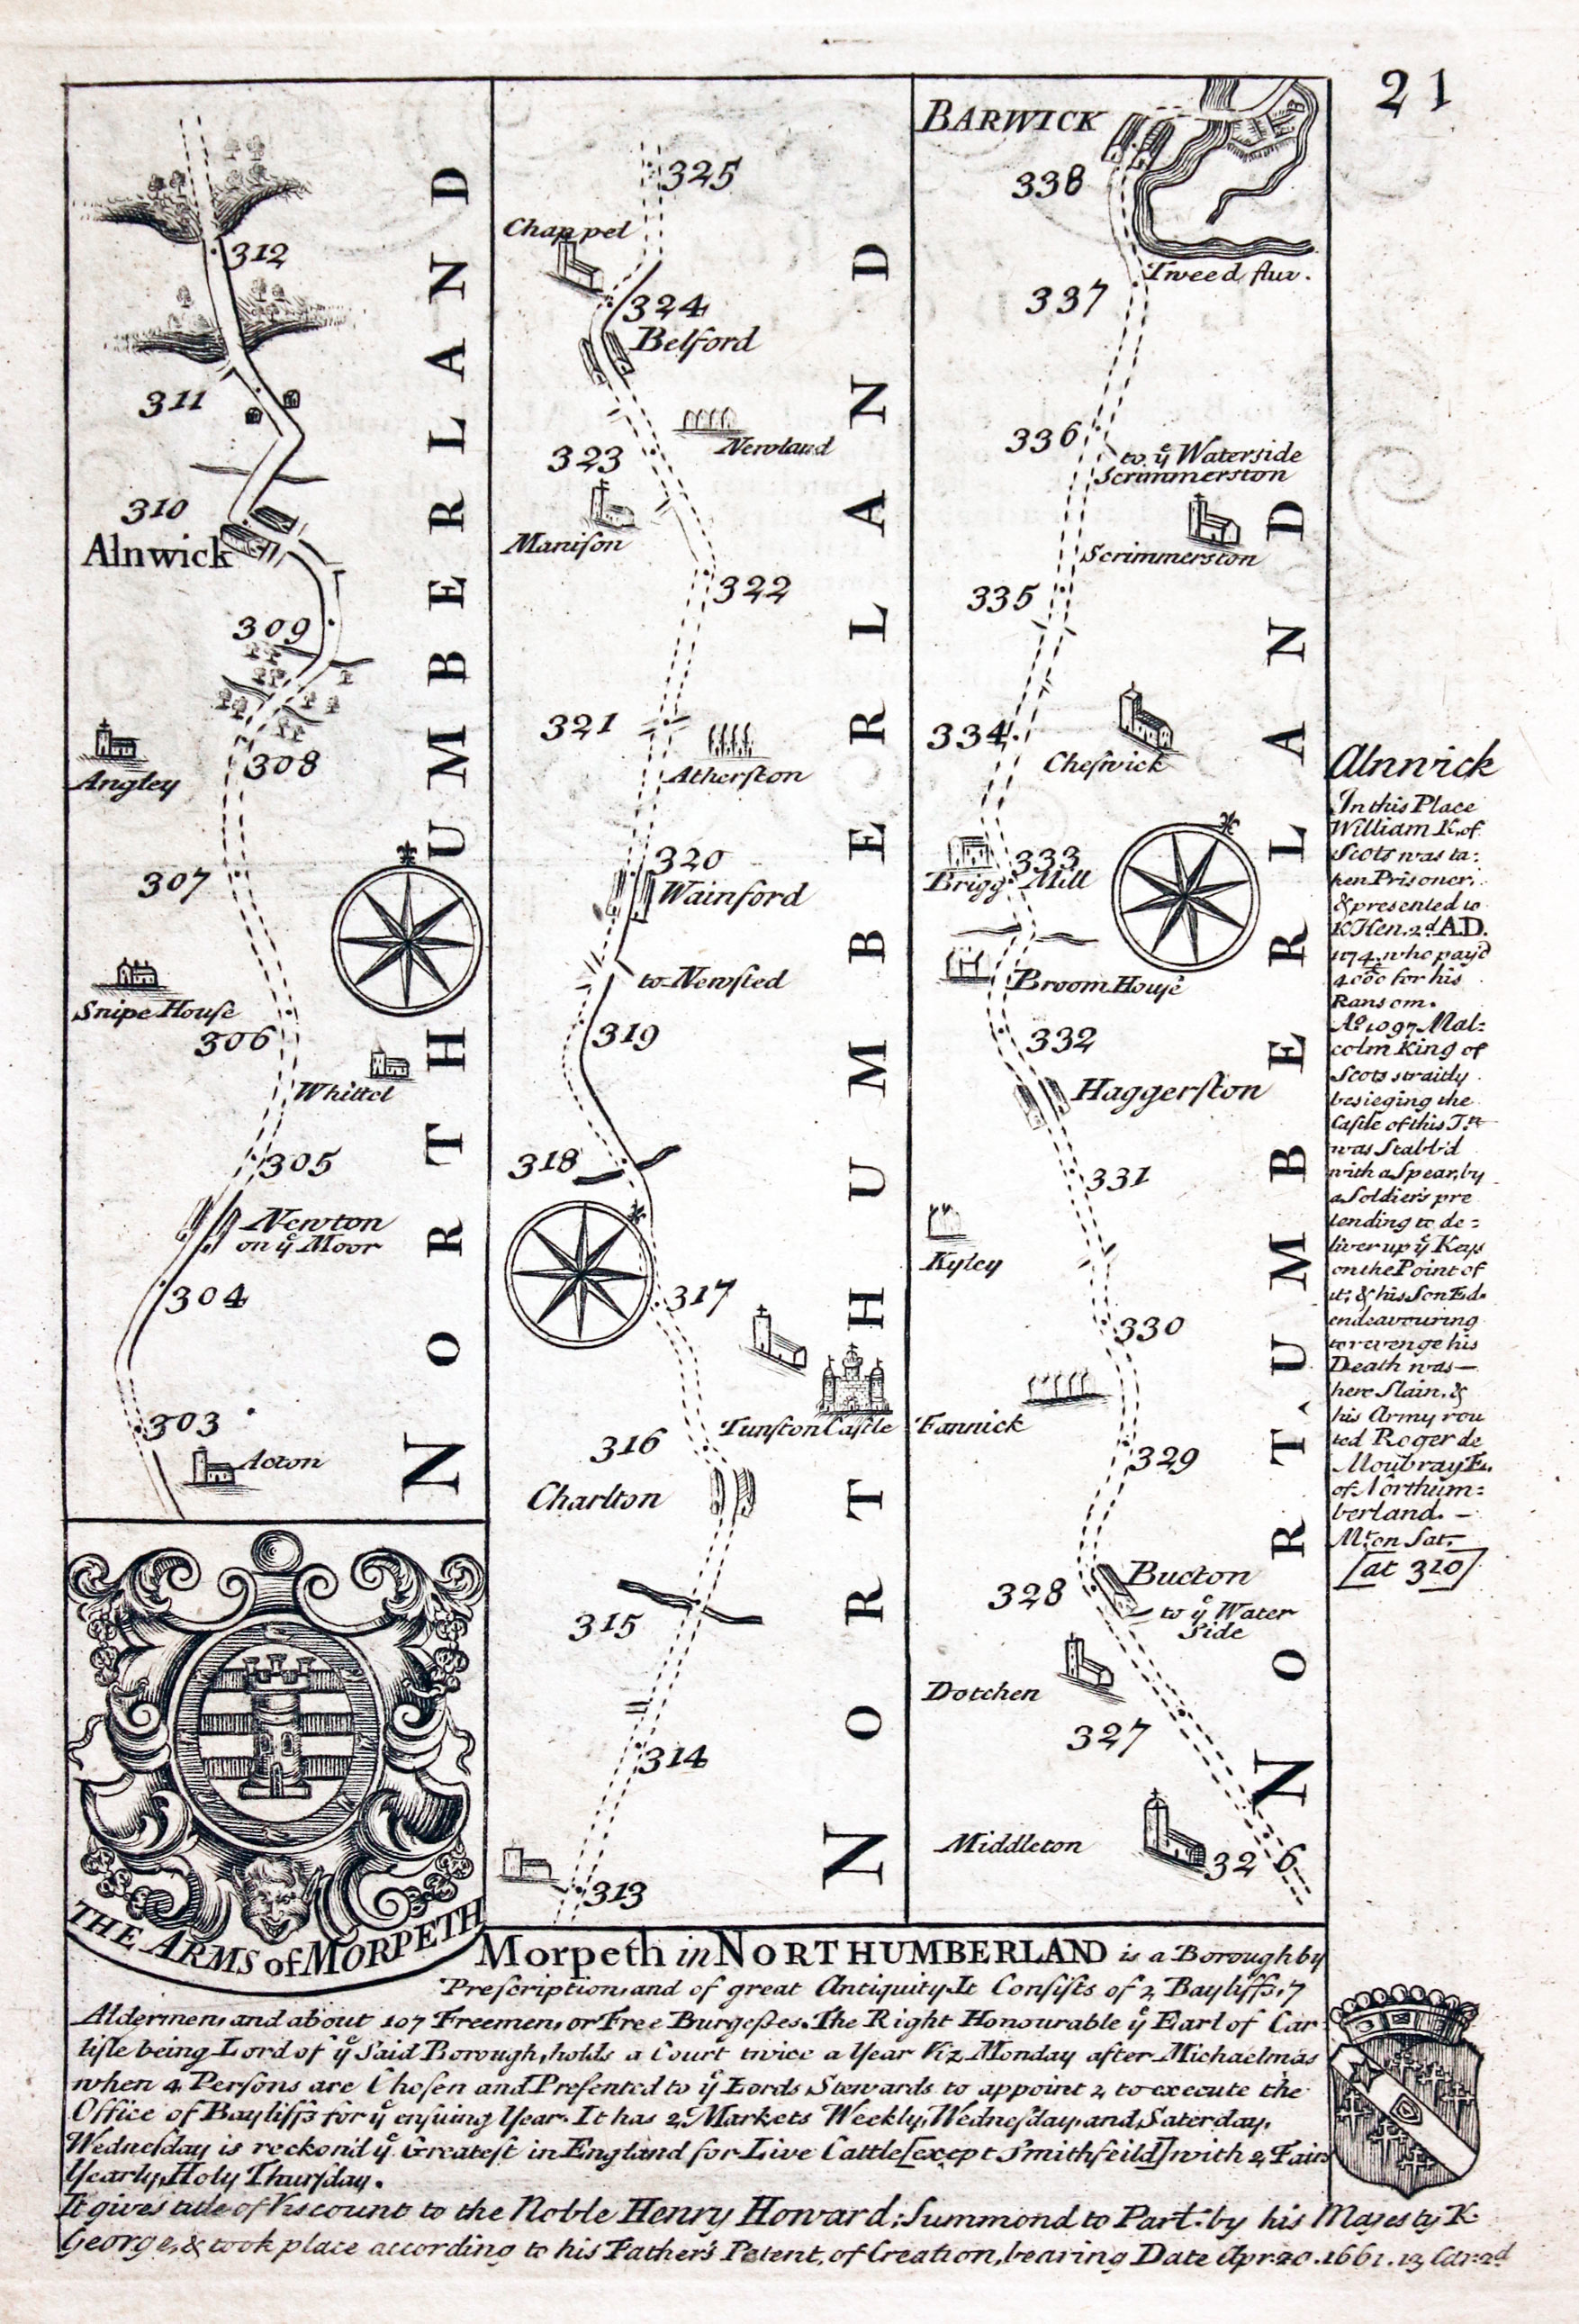 21
312
311
310
Alnwick
309
308
Angley
307
Snipe Houſe
306
Whittel
305
Newton
on yͤ Moor
304
303
Acton
NORTHUMBERLAND
325
Chappel
324
Belford
Newland
323
Maniſon
322
321
Atherſton
320
Wainford
to Newſted
319
318
317
Tunſton Caſtle
316
Charlton
315
314
313
NORTHUMBERLAND
BARWICK
338
Tweed fluv.
337
336
to yͤ Waterside
Scrimmerston
Scrimmerston
335
334
Cheſwick
333
Brigg Mill
Broom Houſe
332
Haggerſton
331
Kyley
330
Fannick
329
Bucton
328
to yͤ Water
Side
Dotchen
327
Middleton
326
NORTUMBERLAND
Alnwick
In this Place
William K. of
Scots was ta-
ken Prisoner,
& presented to
K Hen. 2ᵈ A.D.
1174. who pay'd
4000 for his
Ransom.
Aº 1097 Mal-
colm King of
Scots straitly
besieging the
Caſtle of this Tⁿ
was Stabb'd
with a Spear, by
a Soldier's pre
tending to de-
liver up yͤ Keys
on the Point of
it; & his Son Ed.
endeavouring
to revenge his
Death was
here Slain, &
his Army rou
ted Roger de
Moubray E.
of Northum-
berland. -
Mᵗ on Sat.
[at 310]
THE ARMS of MORPETH
Morpeth in NORTHUMBERLAND is a Borough by
Preſcription, and of great Antiquity. It Conſiſts of 2 Bayliffs, 7
Aldermen, and about 107 Freemen, or Free Burgeſses. The Right Honourable yͤ Earl of Car
liſle being Lord of yͤ Said Borough, holds a Court twice a Year Viz Monday after Michaelmas
when 4 Perſons are Choſen and Preſented to yͤ Lords Stewards to appoint 2 to execute the
Office of Bayliffs for yͤ enſuing Year. It has 2 Markets Weekly, Wedneſday, and, Saterday,
Wedneſday is reckon'd yͤ Greateſt in England for Live Cattle [except Smithfeild] with 2 Fairs
Yearly, Holy Thurſday.
It gives title of Viscount to the Noble Henry Howard; Summond to Parl: by his Majesty K.
George, & took place according to his Father's Patent, of Creation, bearing Date Apr. 20. 1661. 13 Car: 2ᵈ